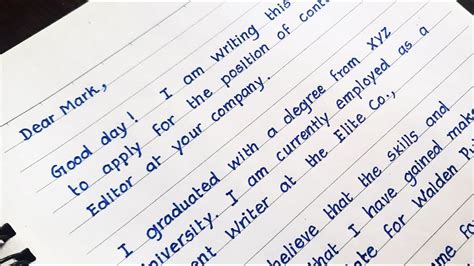 Dear Mark,
Good day! I am writing this
to apply for the position of
Editor at your company.
I graduated with a degree from XYZ
University. I am currently employed as a
Writer at the Elite Co.,
believe that the skills and
that I have gained
for Walden